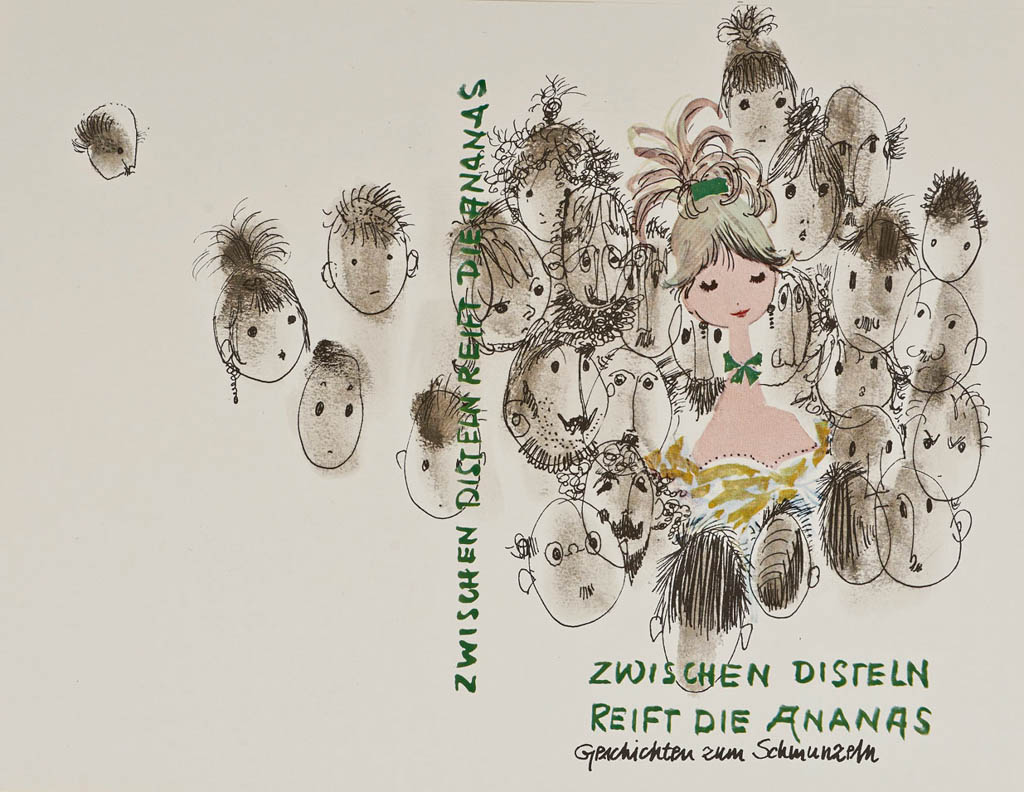 ZWISCHEN DISTELN REIFT DIE ANANAS
ZWISCHEN DISTELN
REIFT DIE ANANAS
Geschichten zum Schmunzeln